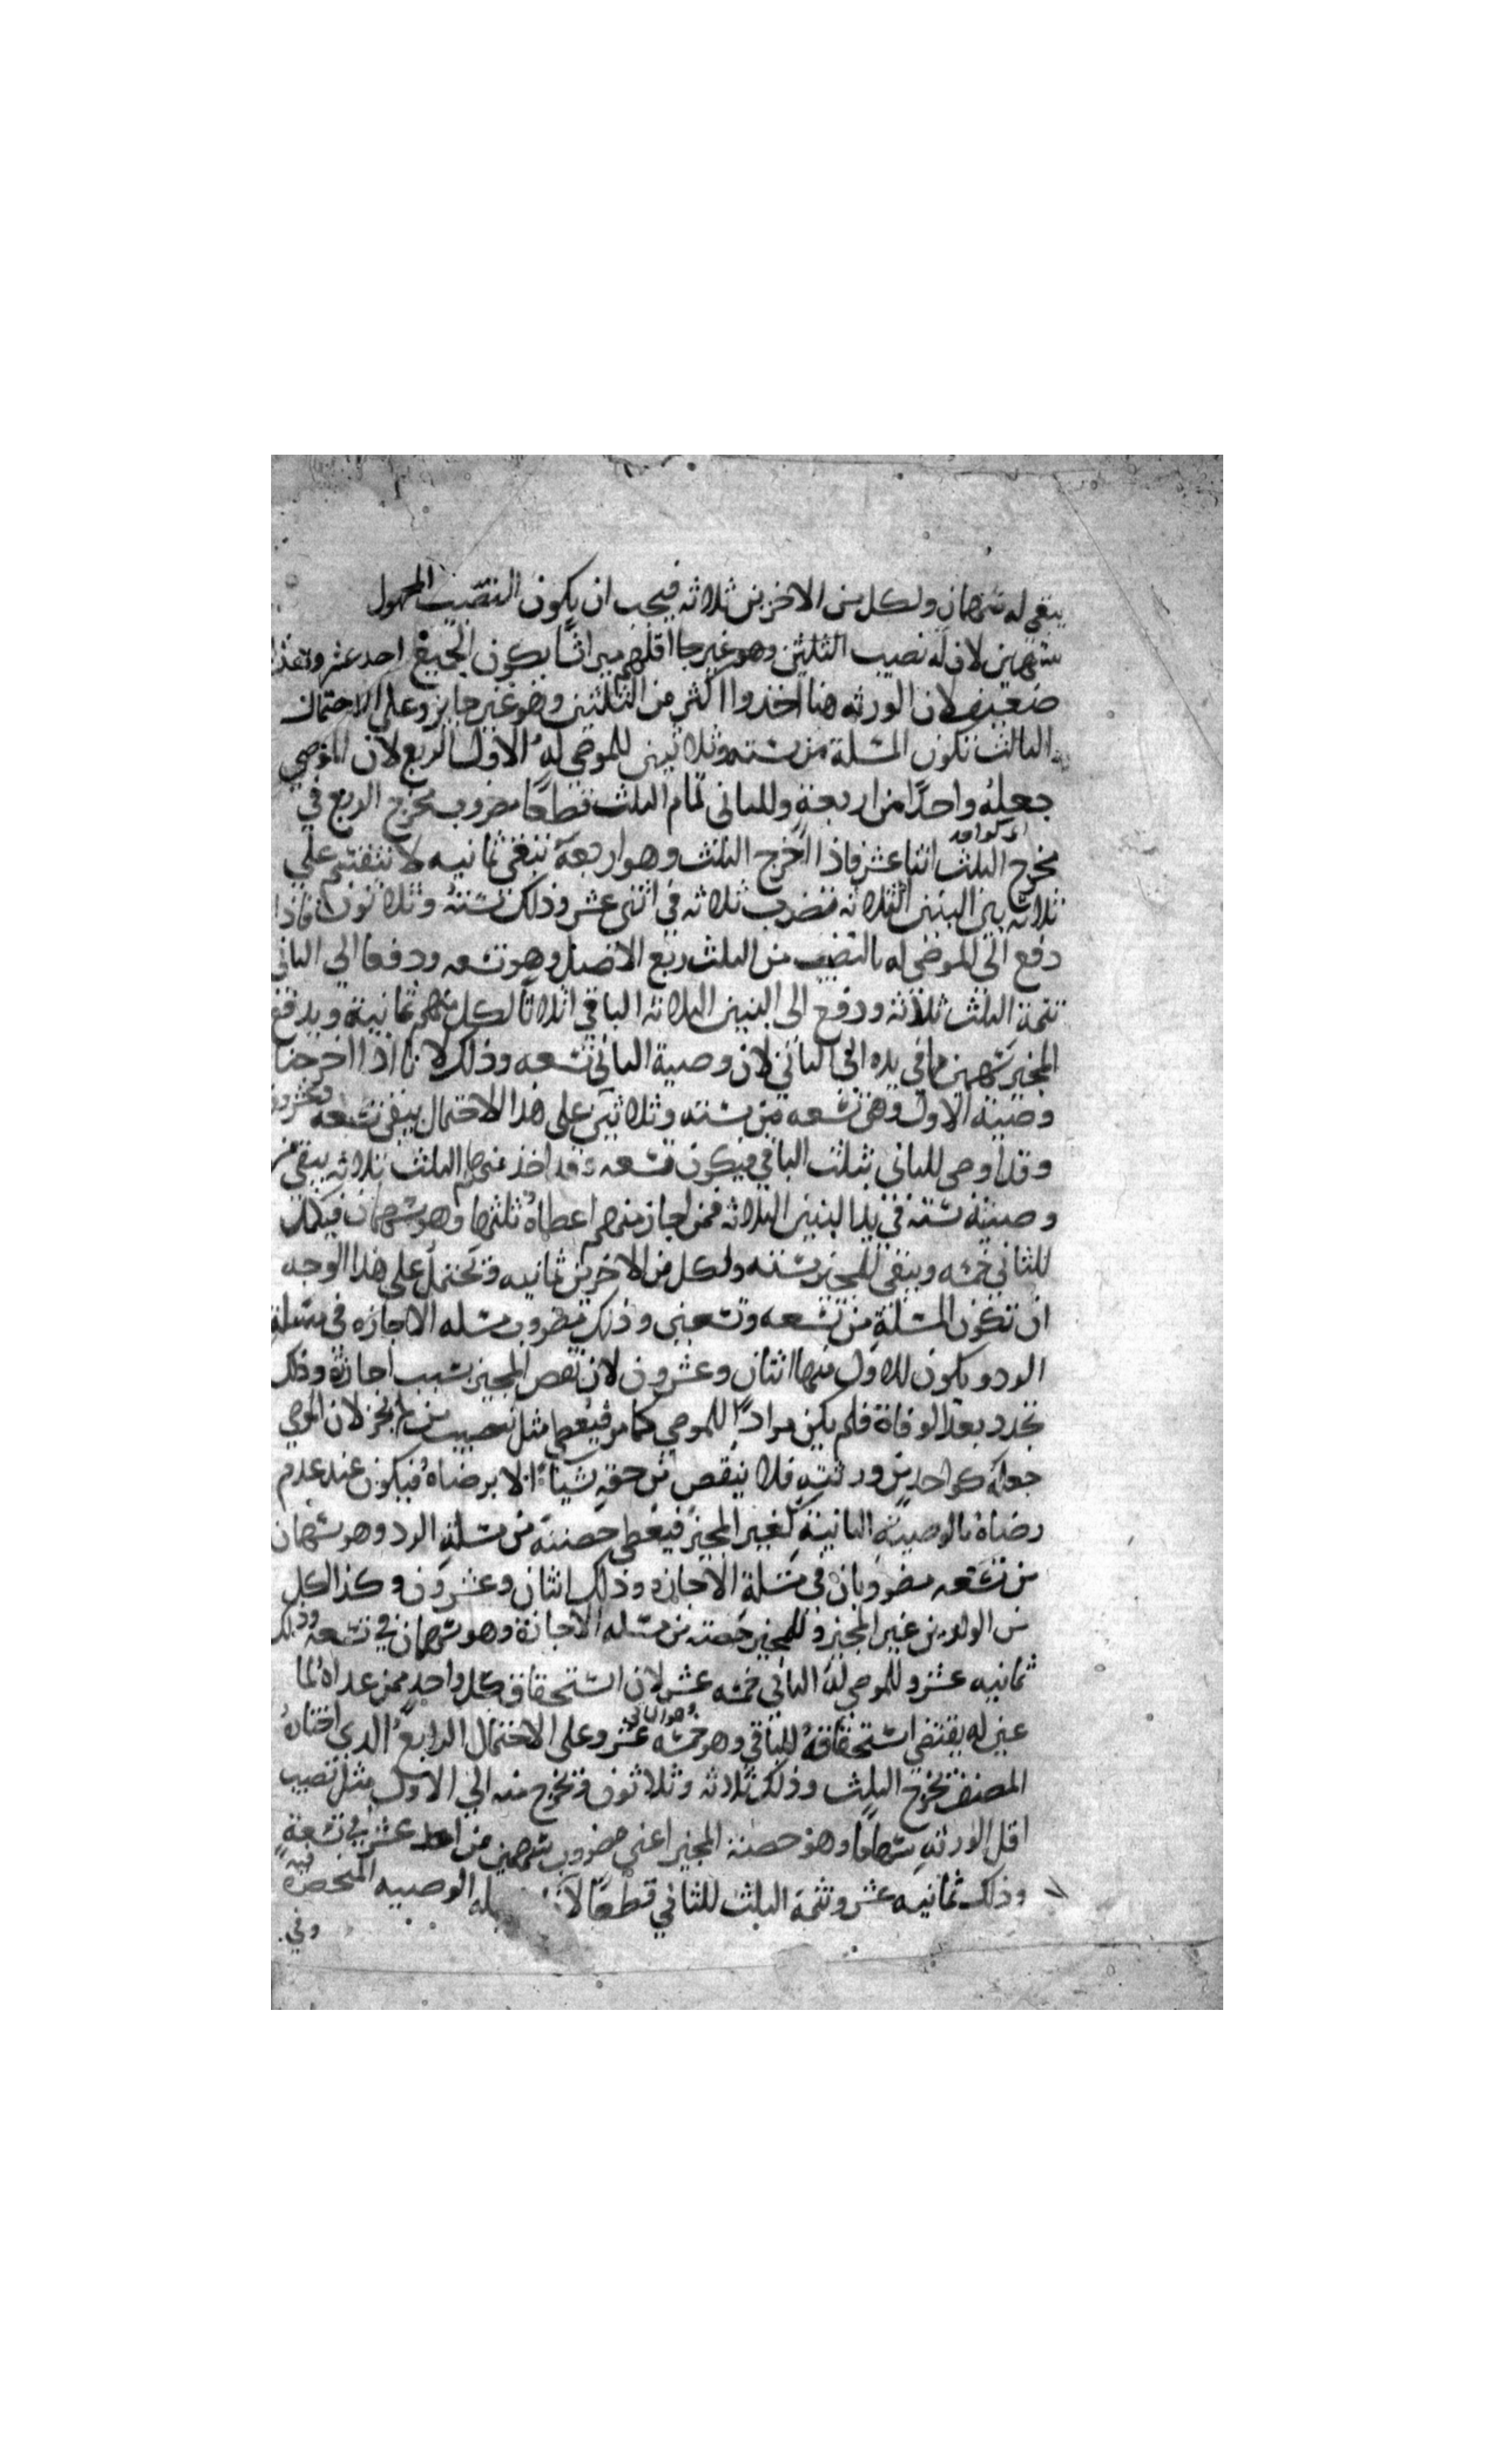 يبقى له سهمان ولكل من الاخرين ثلاثه فيجب ان يكون النصيب المجهول
سهمين لان له نصيب اقلهم ميراثا يكون الجميع احد عشر وهذا
ضعيف لان الورثه هنا اخذوا اكثر من الثلثين وهو غير جايز وعلى الاحتمال
الثالث تكون المسلة من سته وثلاثين للموصى له الاول الربع لان الموصي
جعله واحدًا من اربعة وللثاني تمام الثلث قطعًا مضروب مخرج الربع في
مخرج الثلث اثنا عشر فاذا اخرج الثلث وهو اربعة تبقى ثمانيه لا تنقسم على
ثلاثه بين البنين الثلاثه فتضرب ثلاثه في اثنى عشر وذلك ستة وثلاثون فاذا
دفع الى الموصى له بالنصيب من الثلث ربع الاصل وهو تسعه ودفعا الى الثاني
تتمة الثلث ثلاثة ودفع الى البنين الثلاثه الباقي اثلاثًا لكل منهم ثمانية ويدفع
المجيز سهمين مما في يده الى الثاني لان وصية الثاني تسعه وذلك لانا اذا اخرجنا
وصية الاول وهي تسعه من سته وثلاثين على هذا الاحتمال يبقى سبعه وعشرون
وقد اوصى للثاني بثلث الباقي فيكون تسعه وقد اخذ تمام الثلث ثلاثه يبقى من
وصيته سته في يد البنين الثلاثه فمن اجاز منهم اعطاه ثلثها وهو سهمان فيكمل
للثاني خمسه ويبقى للمجيز سته ولكل من الاخرين ثمانيه وتحتمل على هذا الوجه
ان تكون المسلة من تسعه وتسعين وذلك مضروب مسله الاجازه في مسلة
الرد ويكون للاول منها اثنان وعشرون لان نقص المجيز بسبب اجازة وذلك
تجدد بعد الوفاة فلم يكن مرادًا للموصي كما مر فيعطى مثل نصيب من لم يجز لان الموصي
جعله كواحد من ورثته فلا ينقص من حقه شيا الا برضاه فيكون عند عدم
رضاه بالوصية الثانية كغير المجيز فيعطى حصته من مسلة الرد وهو سهمان
من تسعه مضروبان في مسلة الاجازه وذلك اثنان وعشرون وكذا لكل
من الولدين غير المجيز وللمجيز حصته من مسله الاجازة وهو سهمان في تسعه وذلك
ثمانيه عشر وللموصى له الثاني خمسه عشر لان استحقاق كل واحد ممن عداه لما
عين له يقتضي استحقاقه للباقي وهو خمسه عشر وعلى الاحتمال الرابع الذي اختاره
المصنف تخرج الثلث وذلك ثلاثه وثلاثون وتخرج منه الى الاول مثل نصيب
اقل الورثه سهامًا وهو حصة المجيز اعني مضروب سهمين من احد عشر في تسعة
وذلك ثمانيه عشر وتتمة الثلث للثاني قطعًا الوصيه المنحصرة
وفي